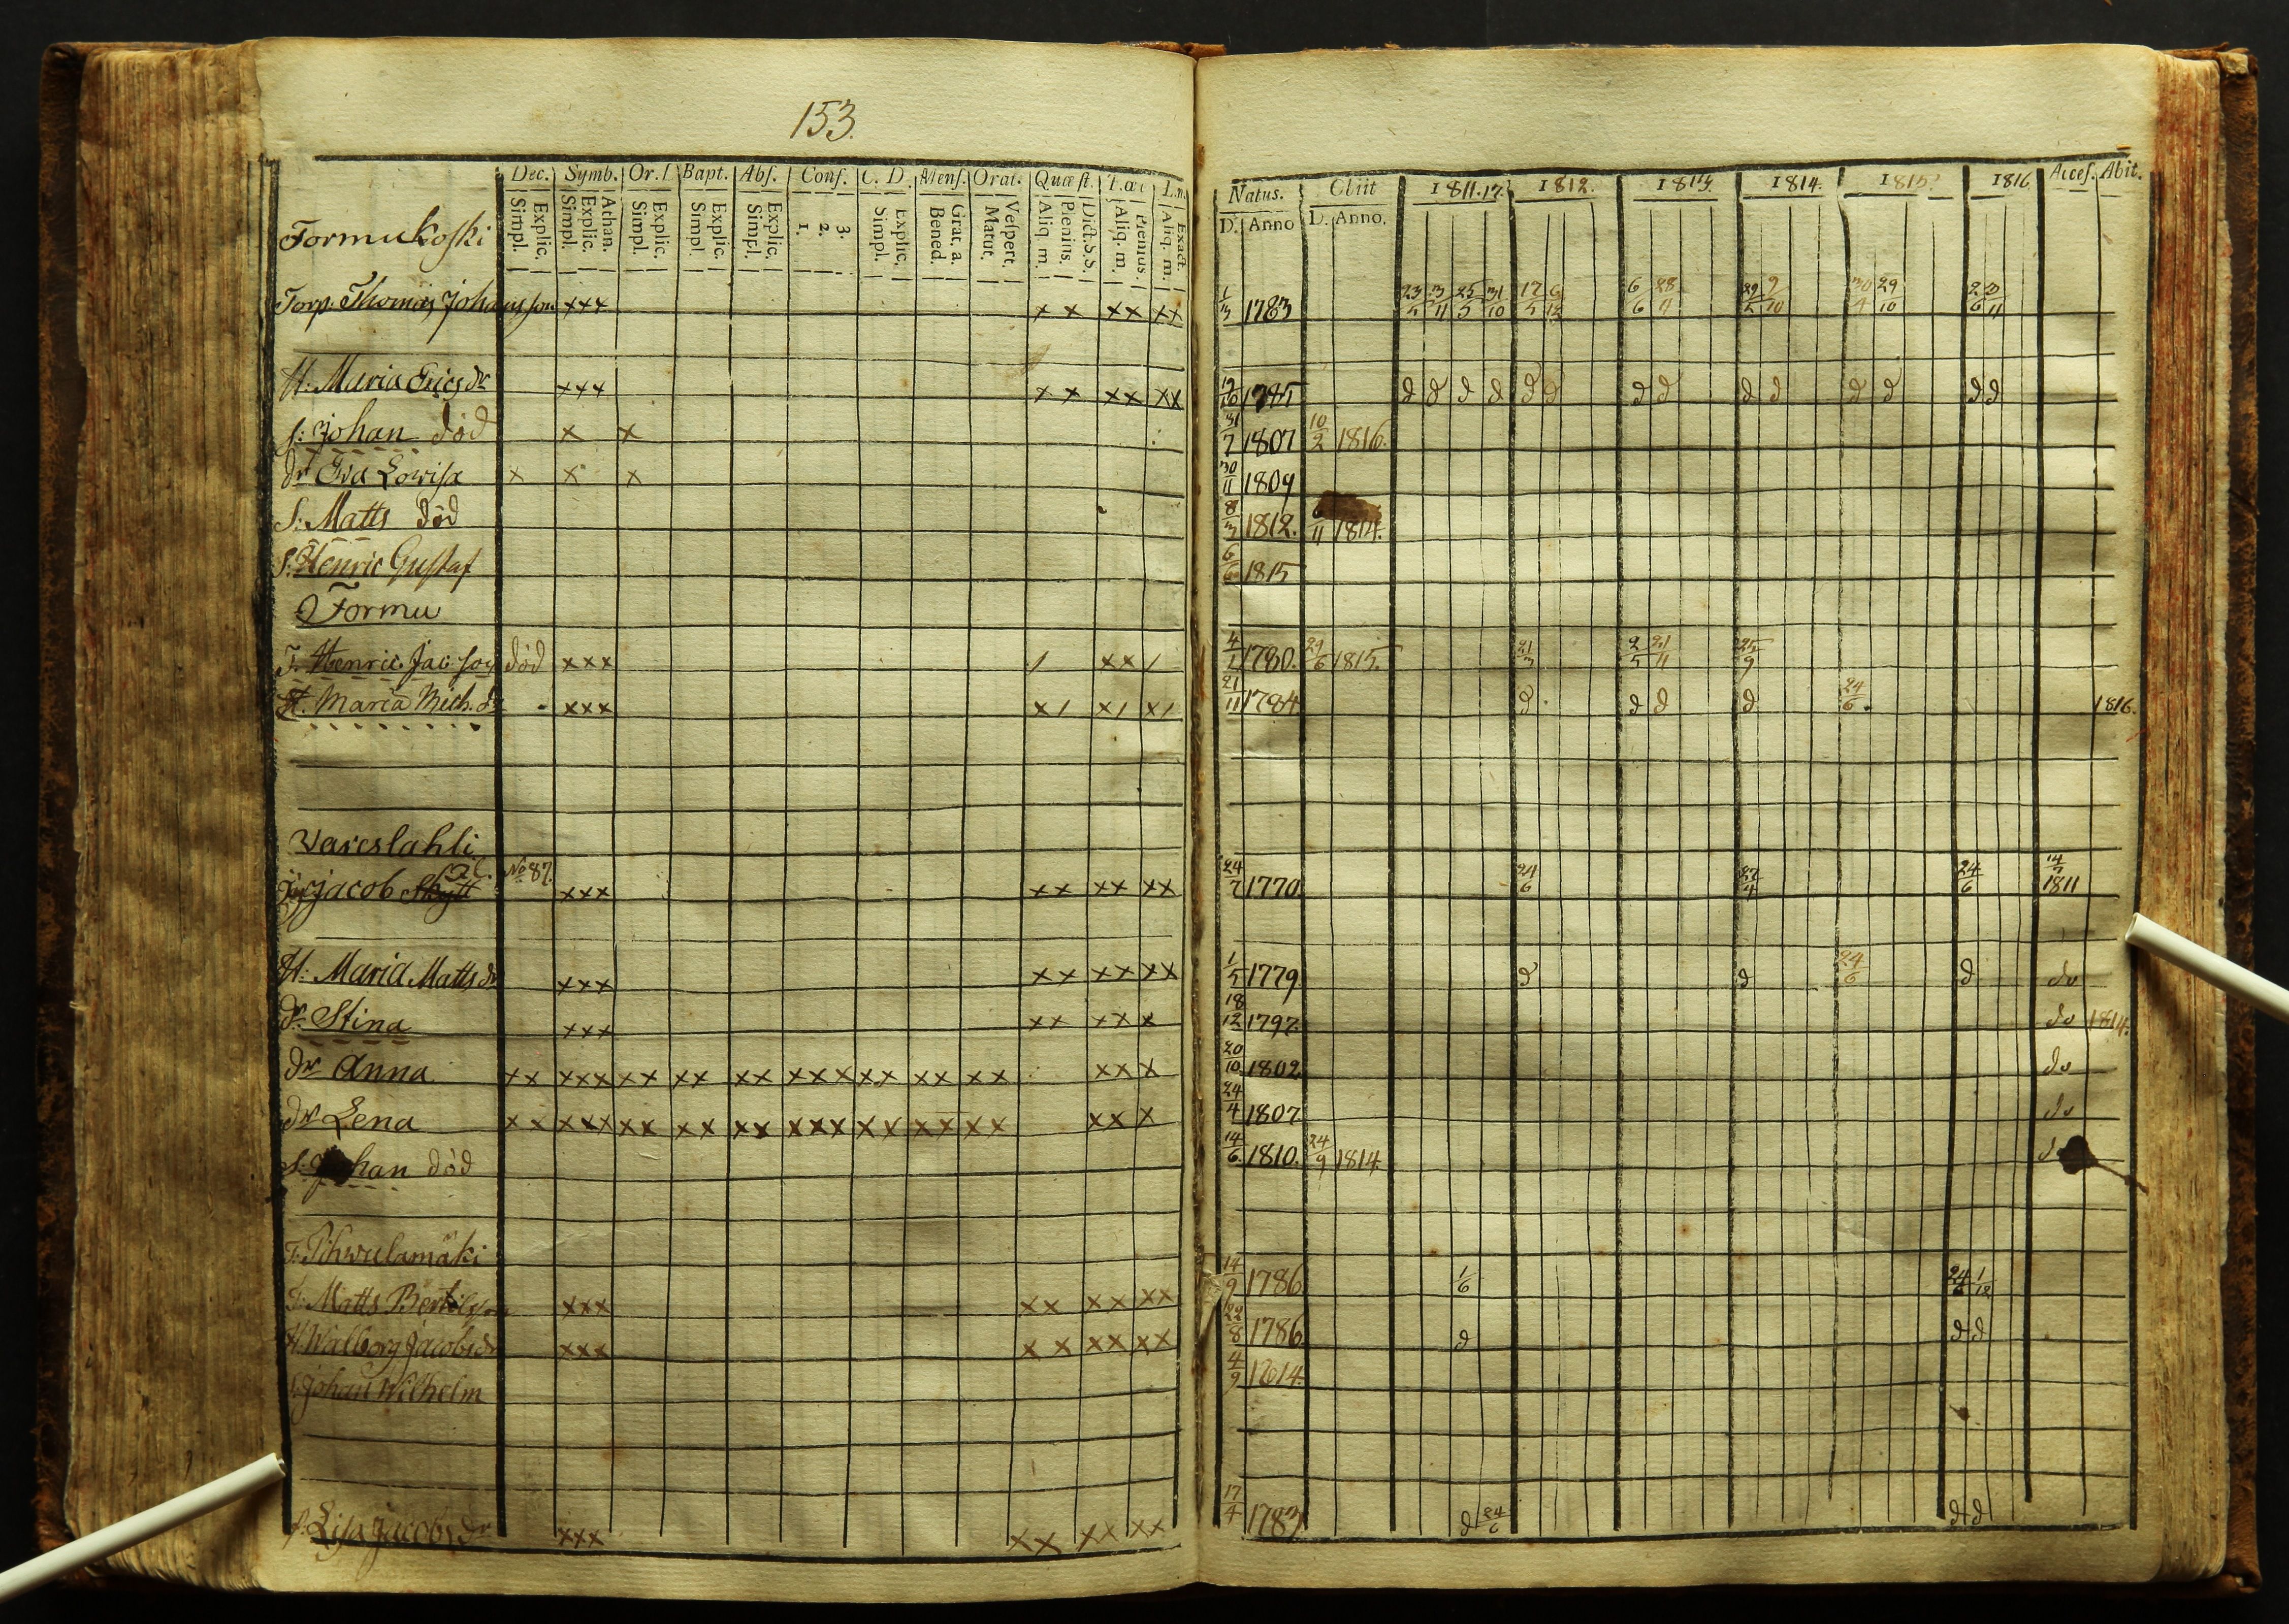 153.
Dec. Symb. Or. Bapt. Abs. Conf. C. D. Mens. Orat. Quæst.
Explic. Simpl. Athan. Explic. Simpl. Explic. Simpl. Explic. Simpl. Explic. Simpl. 3. 2. 1. Explic. Simpl. Grat. a. Bened. Vespert. Matut. Dict. S.S. Plenius. Aliq. m. Plenius. Aliq. m. Exact. Aliq. m.
Natus. Obiit 1811.17. 1812. 1813. 1814. 1815. 1816 Acces. Abit.
D. Anno D. Anno.
Formukoski
Torp. Thomas Johansson xxx x x xx xx 1783 23/5 3/11 25/5 31/10
H: Maria Ericsdr xxx x x xx xx 12/10 1785 d d d d d d d d d d d d d d
s: Johan död x x 31/7 1807 10/2 1816.
dr Eva Lovisa x x x 30/11 1809
S: Matts död 8/3 1812. 11 1814.
S. Henric Gustaf 6/6 1815
Formu
T. Henric Jac. son död xxx / xx / 1780. 6 1815.
H. Maria Mich. dr xxx x/ x/ x/ 21/11 1784 d d d d 24/6 1816.
Vareslahli
Jacob Skytt No 87. xxx xx xx xx 24/7 1770 24/6 27/4 24/6 14/3 1811
H: Maria Mattsdr xxx xx xx xx 1/5 1779 d d 24/6 d do
dr Stina xxx xx xx x 18/12 1797 do 1814.
dr Anna xx xxx xx xx xx xxx xx xx xx xx x 20/10 1802 do
dr Lena xx xxx xx xx xx xxx xx xx xx xx x 24/4 1807 do
S. Johan död 14/6 1810. 24/9 1814.
T: Pihvulamäki
T: Matts Bertilsson xxx xx xx xx 14/9 1786 1/6 24/6 1/12
H. Walborg Jacobsdr xxx x x xx xx 22/8 1786 d d d
s. Johan Wilhelm 4/9 1814.
Lisa Jacobsdr xxx xx xx xx 17/4 1783 d 24/6 d d